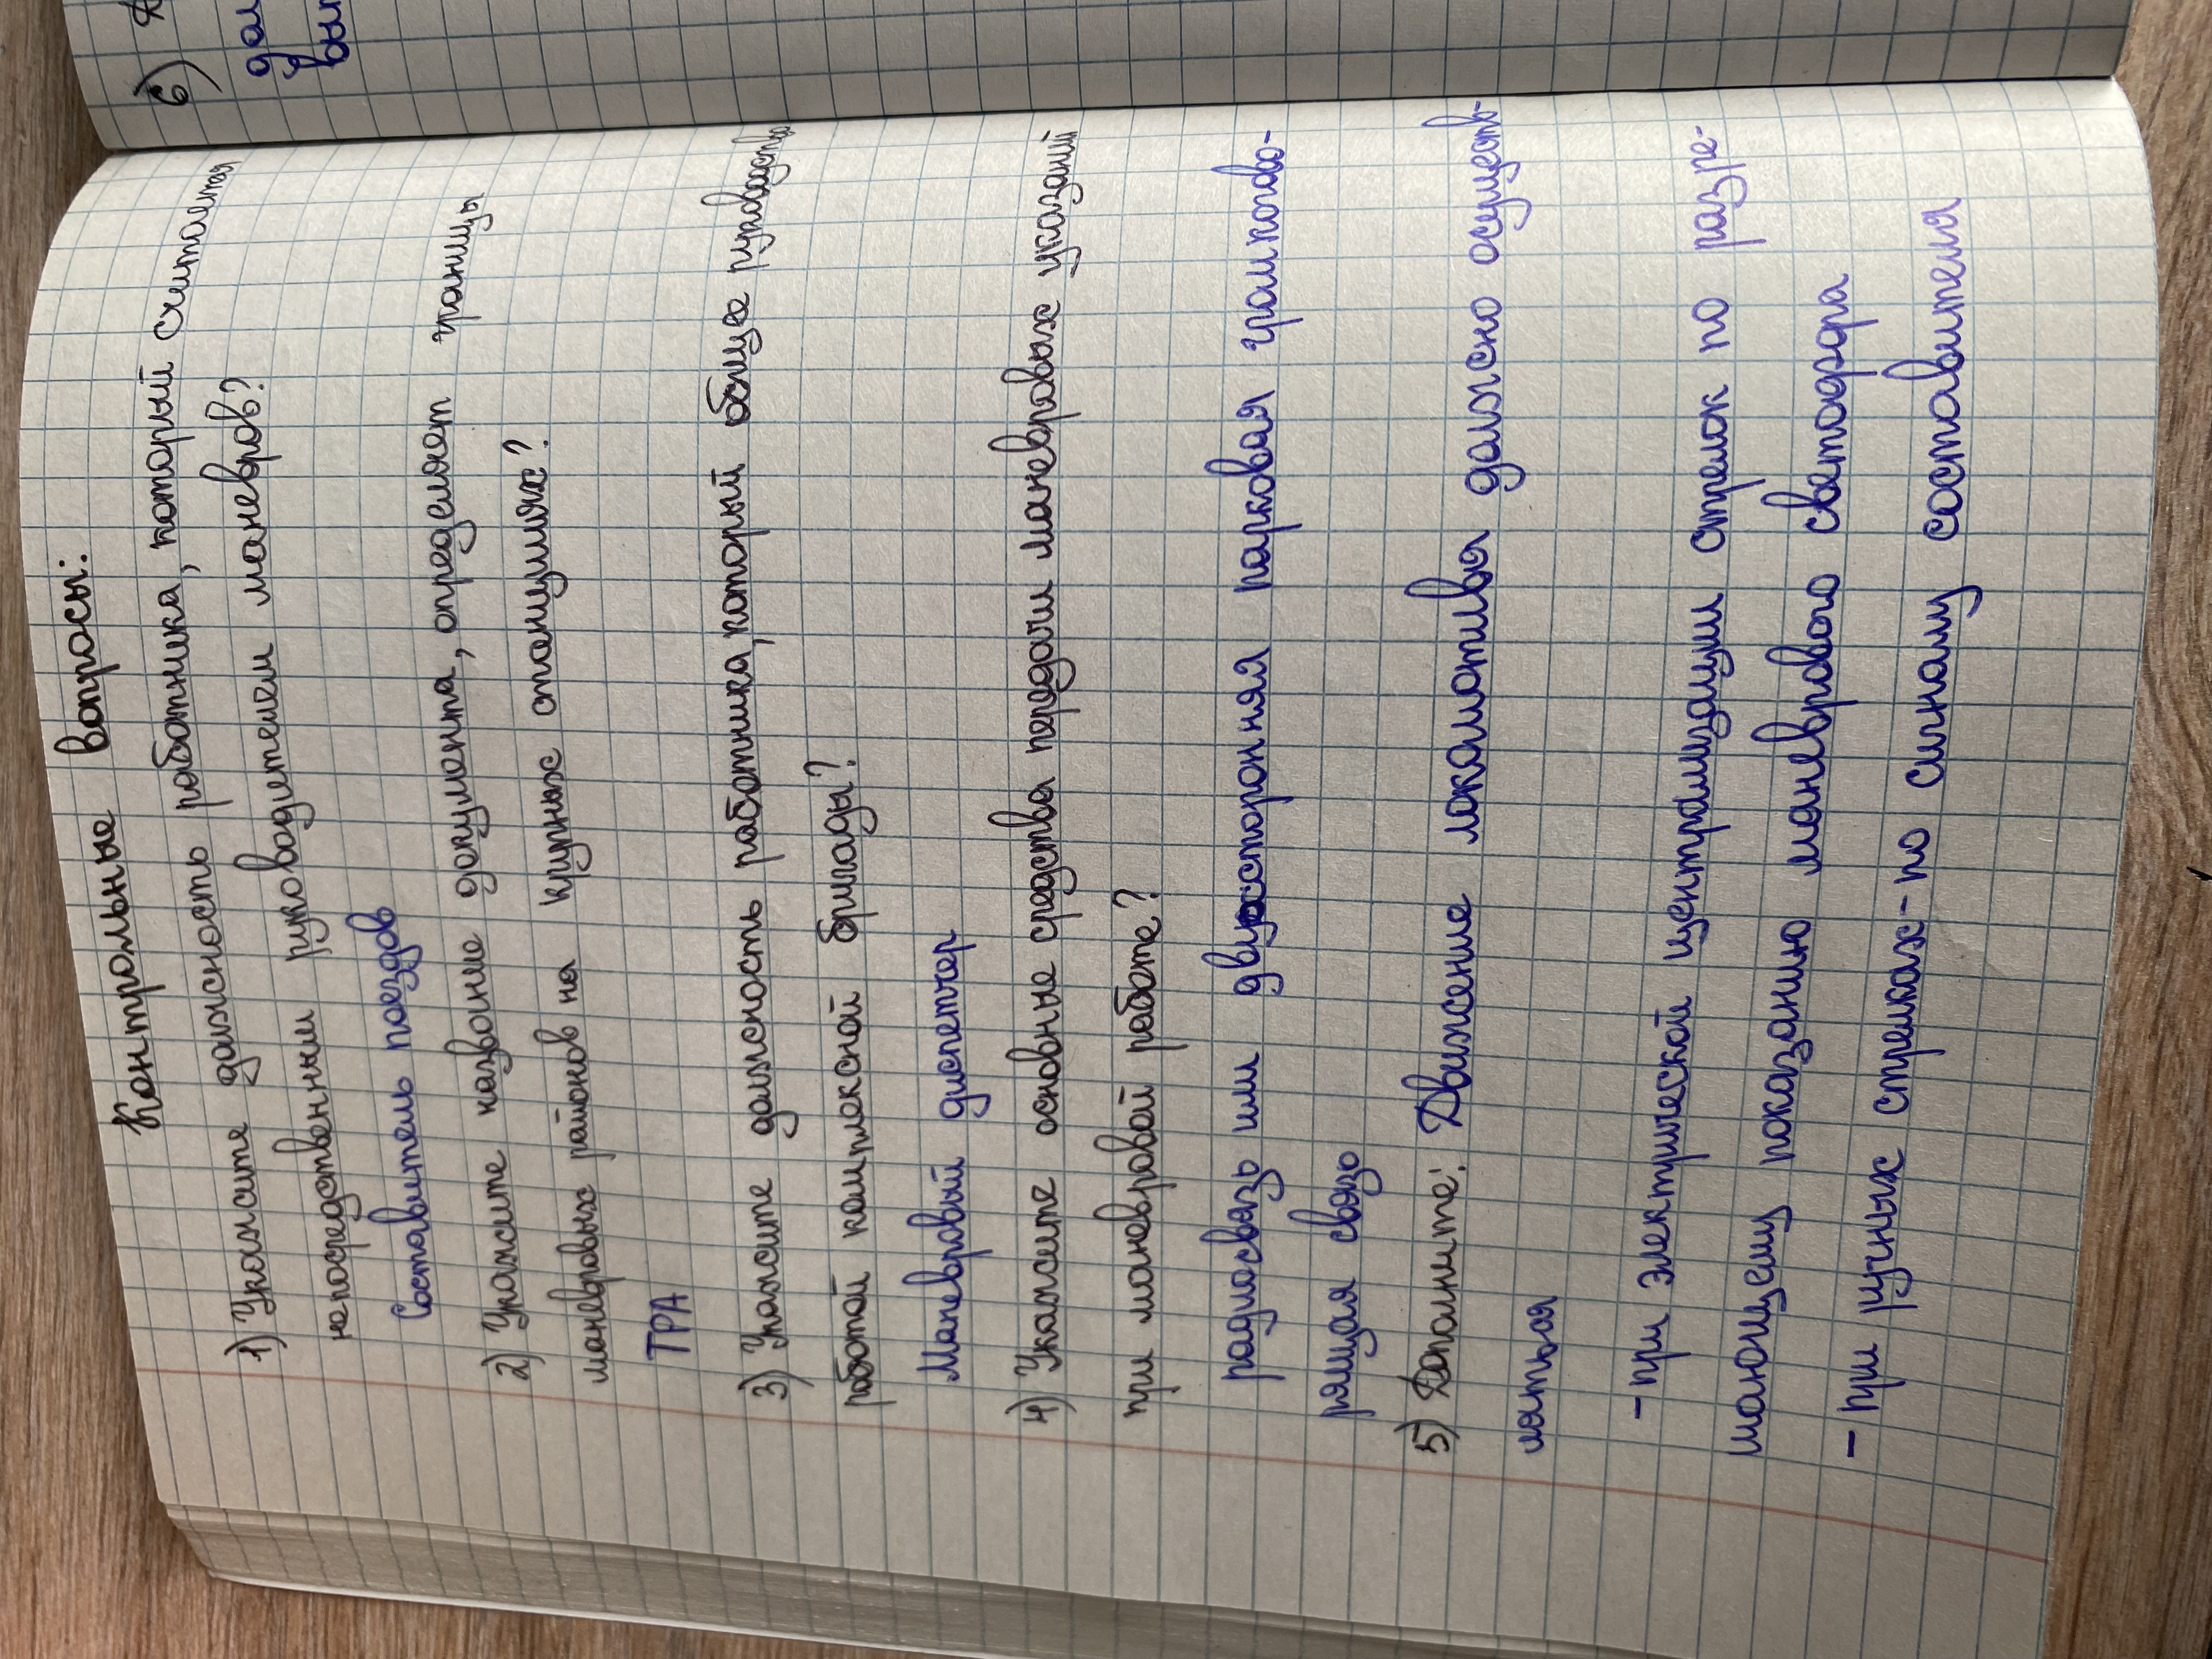 Контрольные вопросы:
1) Укажите должность работника, который считается
непосредственным руководителем маневров?
Составитель поездов
2) Укажите название документа, определяет границы
маневровых районов на крупных станциях?
ТРА
3) Укажите должность работника, который общее руководство
работой комплексной бригады?
Маневровый диспетчер
4) Укажите основные средства передачи маневровых указаний
при маневровой работе?
радиосвязь или двусторонняя парковая громкогово-
рящая связь
5) Дополните: Движение локомотивы должно осуществ-
ляться
- при электрической централизации стрелок по разре-
шающему показанию маневрового светофора
- при ручных стрелках - по сигналу составителя
6)